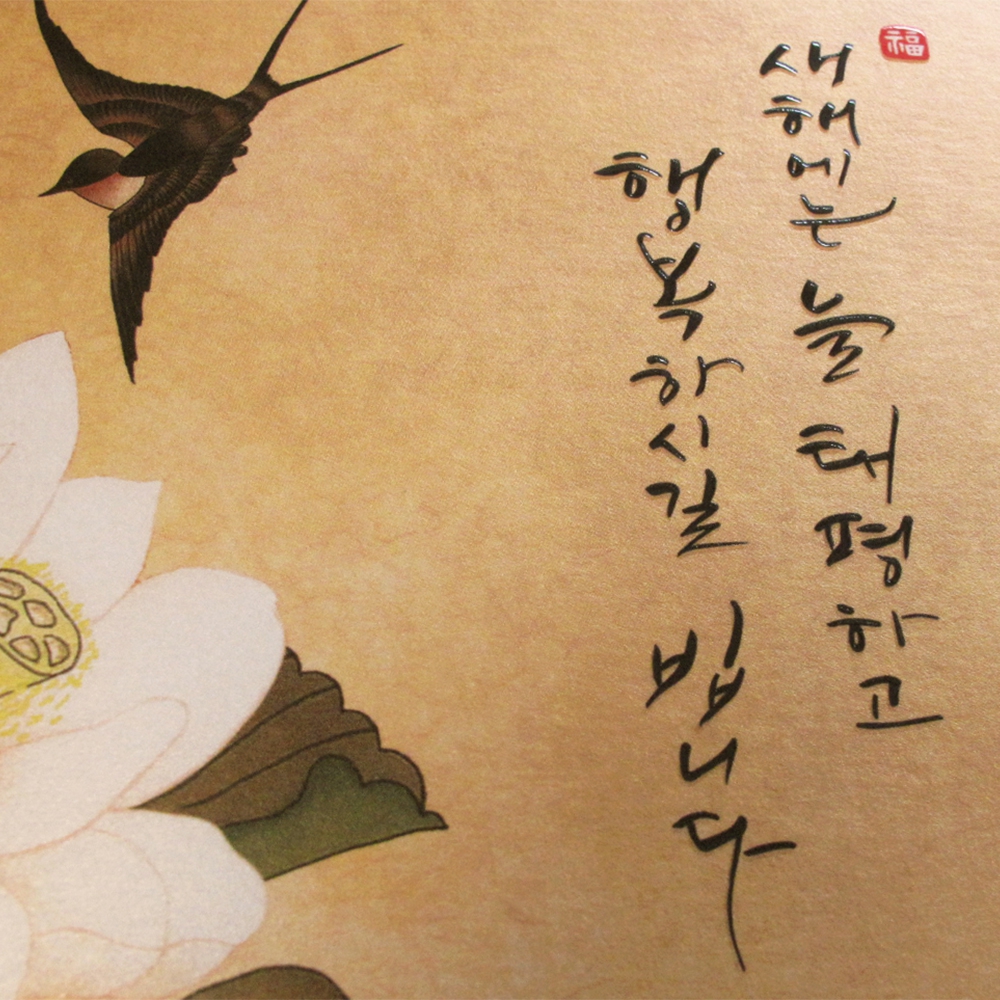 福
새해에는 늘 태평하고
행복하시길 빕니다